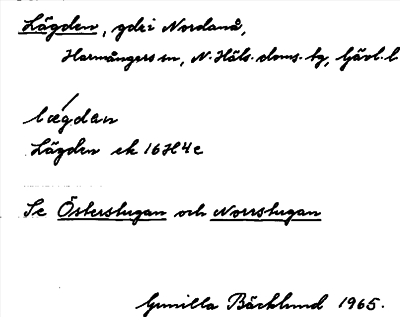 Lägden, gd i Nordanå,
Harmångers sn, N. Häls. doms. tg, Gävl. l
lǽgdan
Lägden ek 16H4e
Se Österstugan och Norrstugan
Gunilla Bäcklund 1965.